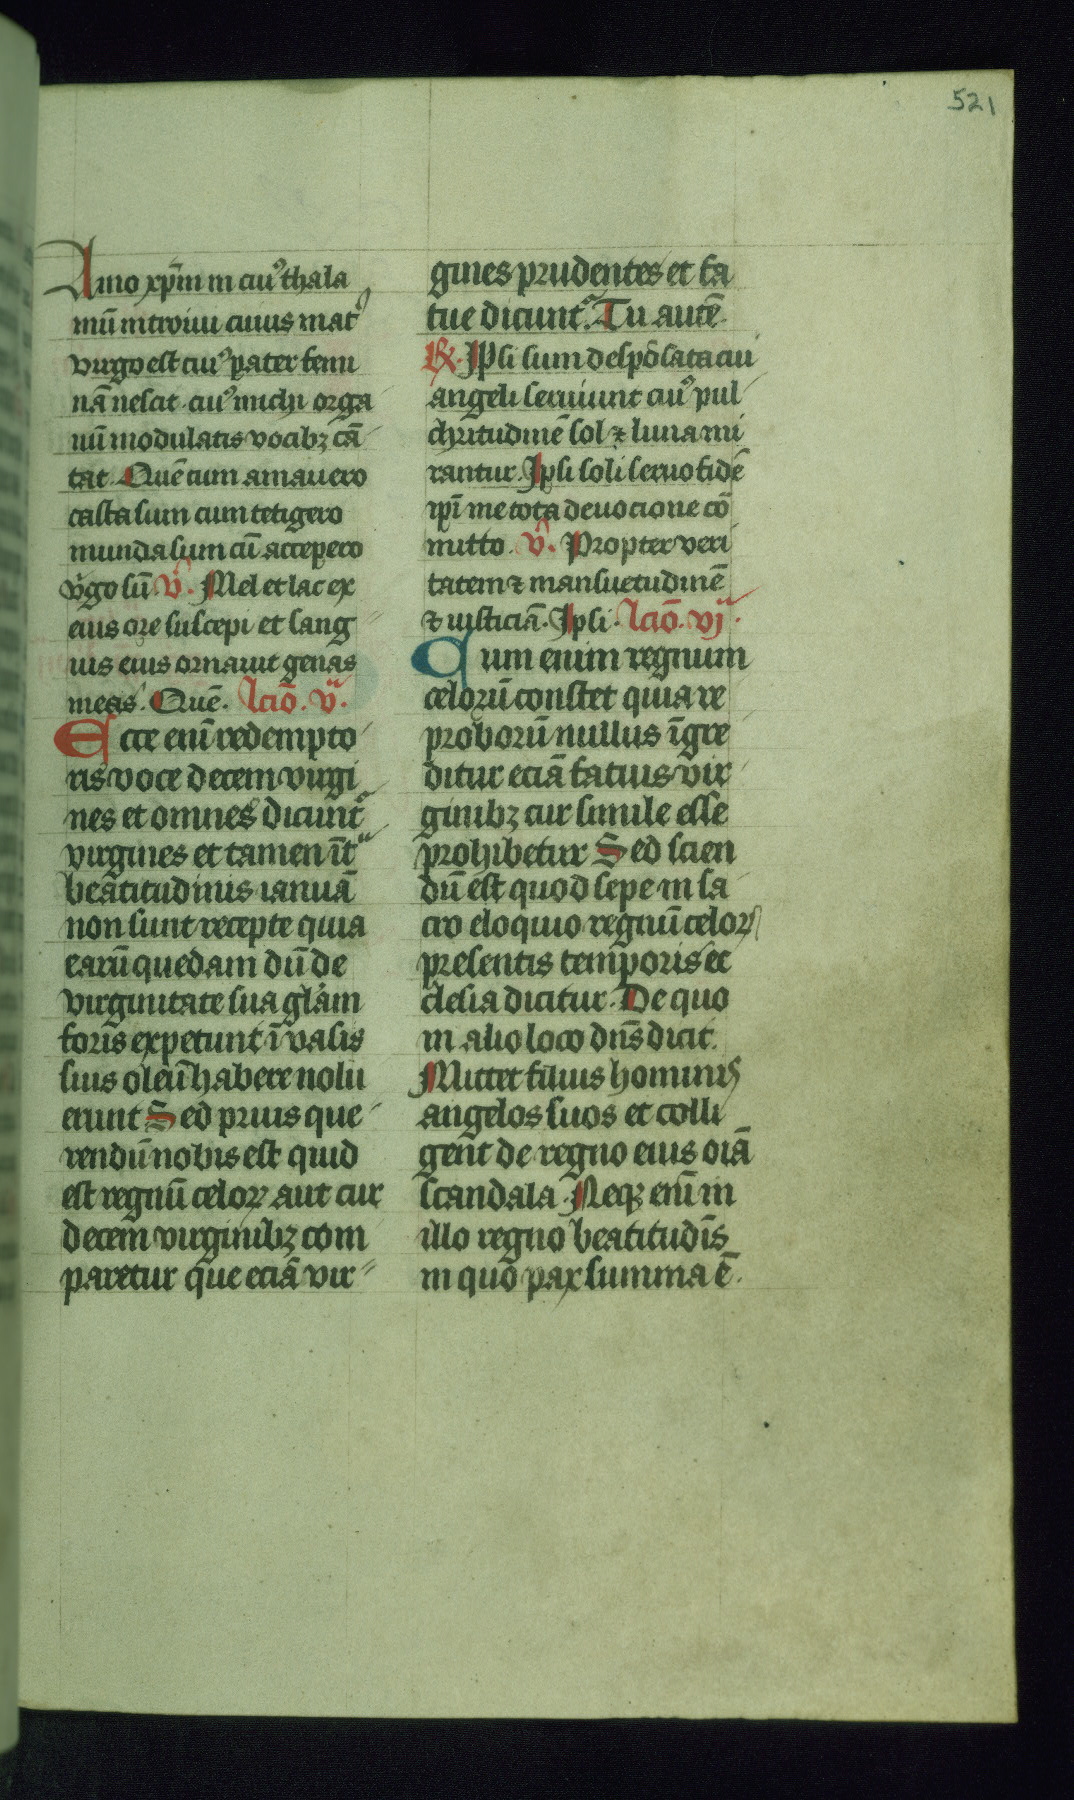 521
Amo xp̄m in cuiꝰ thala
mū introiui cuius matꝰ
virgo est cuiꝰ pater femi
nā nescit cuiꝰ michi orga
nū modulatis vocibꝫ cā
tat. Quē cum amauero
casta sum cum tetigero
munda sum cū accepero
v̾go sū V̾. Mel et lac ex
eius ore suscepi et sang
uis eius ornauit genas
meas. Quē. Lcīo. v.
Ecce enī redempto
ris voce decem virgi
nes et omnes dicunt᷑
virgines et tamen īt᷑
beatitudinis ianuā
non sunt recepte quia
earū quedam dū de
virginitate sua gl̄am
foris expetunt ī vasis
suis oleū habere nolu
erunt Sed prius que
rendū nobis est quid
est regnū celoꝝ aut cur
decem virginibꝫ com
paretur que eciā vir
gines prudentes et fa
tue dicunt᷑. Tu autē
℟. Ipsi sum despōsata cui
angeli seruiunt cuiꝰ pul
chritudinē sol ⁊ luna mi
rantur. Ipsi soli seruo fidē
ipī me tota deuocione cō
mitto. V̾. Propter veri
tatem ⁊ mansuetudinē
⁊ iusticiā. Ipsi. Lcīo. vj.
Cum enim regnum
celorū constet quia re
proborū nullus īgre
ditur eciā fatuis vir
ginibꝫ cur simile esse
prohibetur Sed scien
dū est quod sepe in sa
cro eloquio regnū celoꝝ
presentis temporis ec
clesia dicitur. De quo
in alio loco dn̄s dicit.
Mittet filius hominis
angelos suos et colli
gent de regno eius oīa
scandala. Neqꝫ enī in
illo regno beatitudīs
in quo pax summa ē.